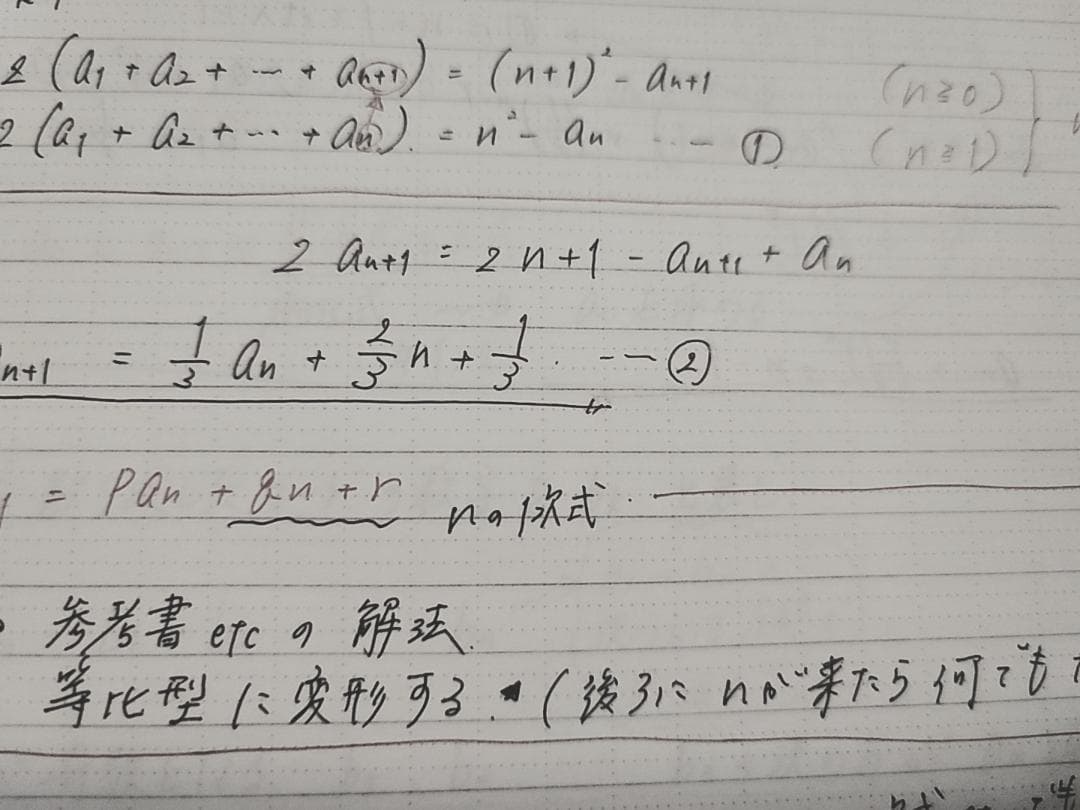 2 (a₁ + a₂ + … + aₙ₊₁) = (n+1)² - aₙ₊₁ (n≧0)
2 (a₁ + a₂ + … + aₙ) = n² - aₙ … ① (n≧1)
2 aₙ₊₁ = 2n+1 - aₙ₊₁ + aₙ
n+1 = 1/3 aₙ + 2/3 n + 1/3 … ②
= Paₙ + qn + r nの1次式
参考書 etc の 解法.
等比型 に 変形する. (後ろに nが来たら 何でも